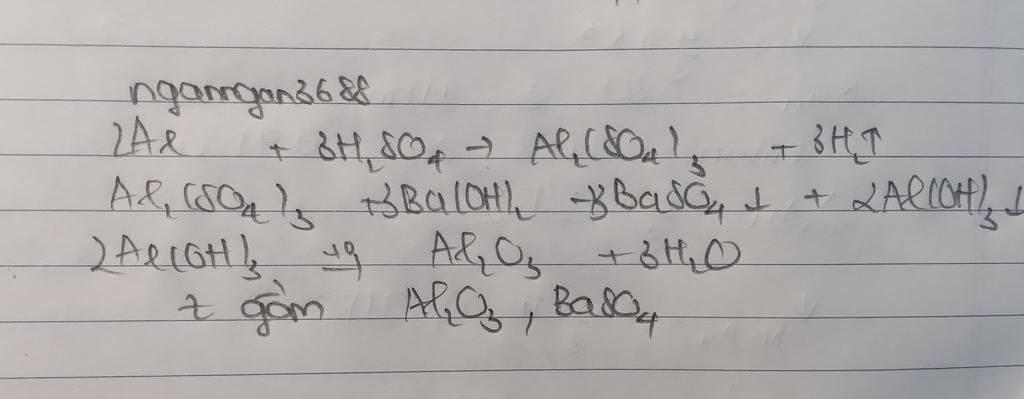 nganngan3688
2Al + 3H₂SO₄ → Al₂(SO₄)₃ + 3H₂↑
Al₂(SO₄)₃ + 3Ba(OH)₂ → 3BaSO₄↓ + 2Al(OH)₃↓
2Al(OH)₃ Al₂O₃ + 3H₂O
z gồm Al₂O₃, BaSO₄